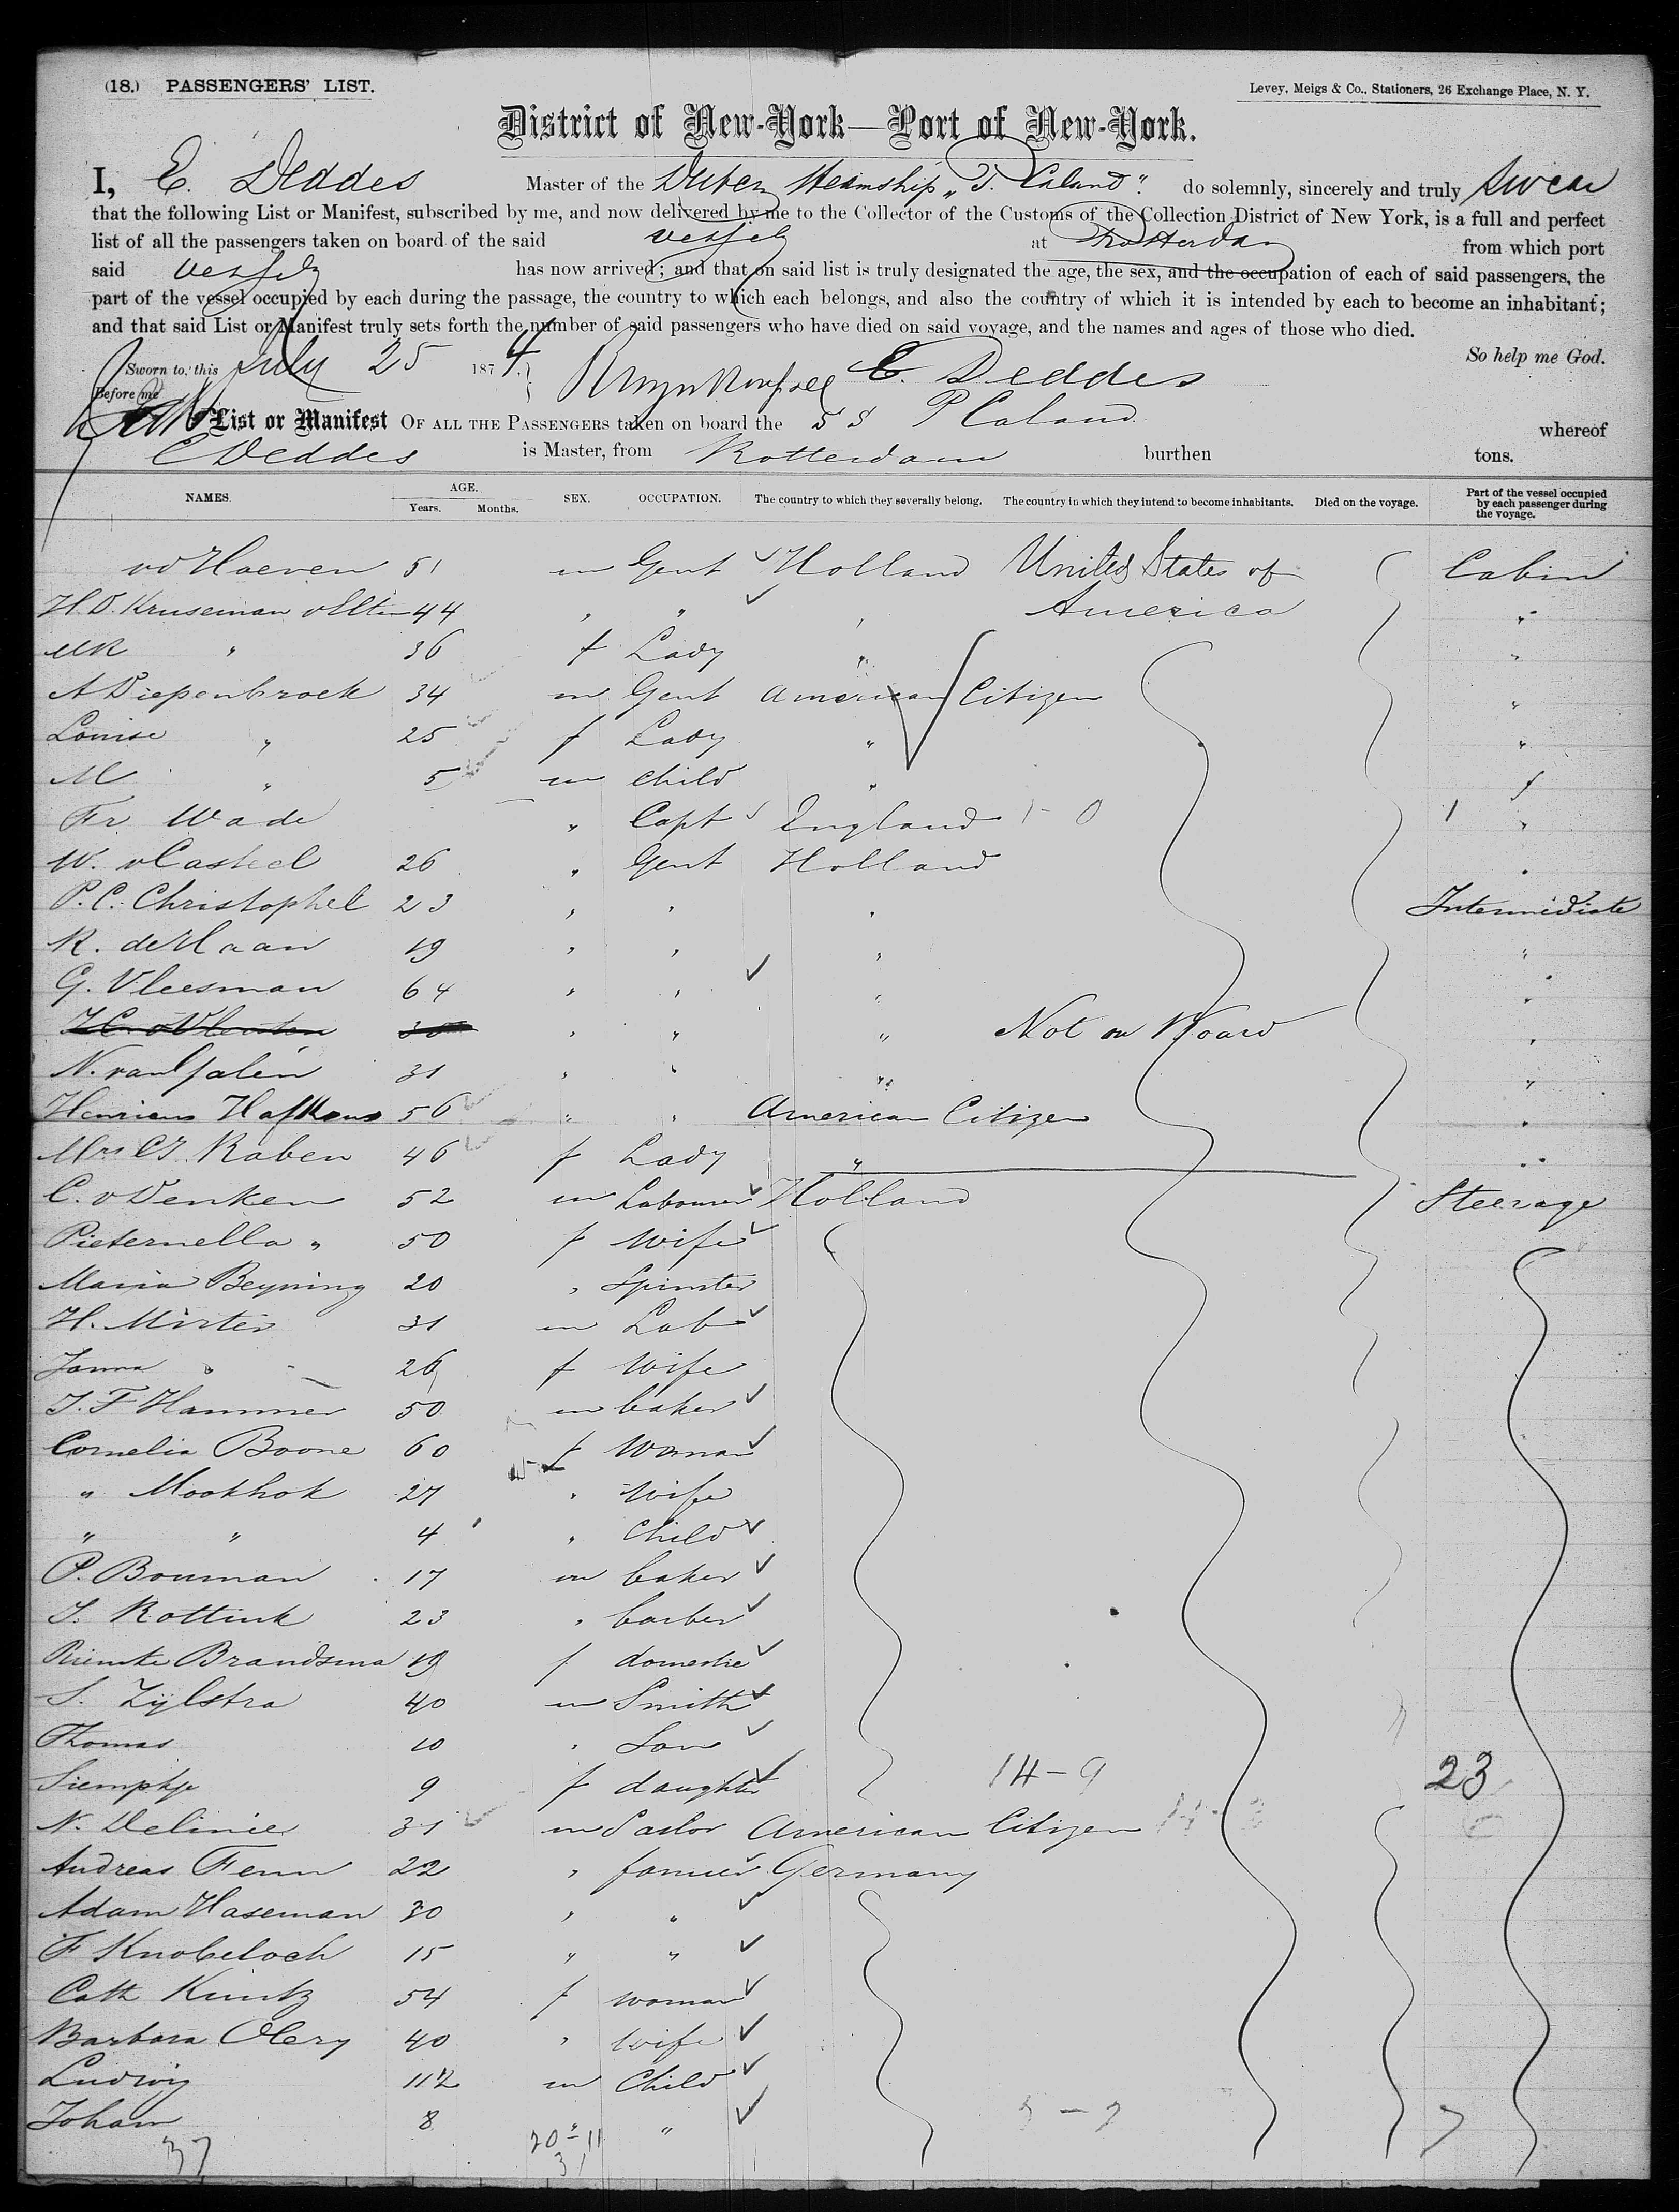 (18.) PASSENGERS' LIST.
Levey, Meigs & Co., Stationers, 26 Exchange Place, N. Y.
District of New-York—Port of New-York.
I, E. Deddes Master of the Dutch Steamship "P. Caland" do solemnly, sincerely and truly swear
that the following List or Manifest, subscribed by me, and now delivered by me to the Collector of the Customs of the Collection District of New York, is a full and perfect
list of all the passengers taken on board of the said vessel at Rotterdam from which port
said vessel has now arrived; and that on said list is truly designated the age, the sex, and the occupation of each of said passengers, the
part of the vessel occupied by each during the passage, the country to which each belongs, and also the country of which it is intended by each to become an inhabitant;
and that said List or Manifest truly sets forth the number of said passengers who have died on said voyage, and the names and ages of those who died.
So help me God.
Sworn to, this July 25 1874. E. Deddes
Before me
List or Manifest OF ALL THE PASSENGERS taken on board the SS P Caland whereof
E Deddes is Master, from Rotterdam burthen tons.
NAMES. AGE. Years. Months. SEX. OCCUPATION. The country to which they severally belong. The country in which they intend to become inhabitants. Died on the voyage. Part of the vessel occupied by each passenger during the voyage.
vd Hoeven 51 m Gent Holland United States of Cabin
H.D. Kruseman v Elten 44 " " " America "
MR " 36 f Lady " "
A Diepenbrock 34 m Gent American Citizen "
Louise " 25 f Lady " "
M " 5 m child " "
Fr Wade " Capt England 1-0 1 "
W. v Casteel 26 " Gent Holland "
P.C. Christophel 23 " " " Intermediate
R. de Haan 19 " " " "
G. Vleesman 64 " " " "
" " " Not on Board "
N. van Galen 31 " " " "
56 " " American Citizen "
Mrs Raben 46 f Lady " "
C. v Denken 52 m Labourer Holland Steerage
Pieternella " 50 f Wife
Maria Beyning 20 " Spinster
H. Mirter 31 m Lab
Janna " 26 f Wife
J. F Hammer 50 m baker
Cornelia Boone 60 f Woman
" Mookhok 27 " Wife
" " 4 " Child
P. Bouman 17 m baker
J. Rottink 23 " barber
Riemke Brandsma 19 f domestic
S. Zylstra 40 m Smith
Thomas 10 " Son
Siemptje 9 f daughter 14-9 23
N. Delinie 31 m Sailor American Citizen
Andreas Fenn 22 " farmer Germany
Adam Haseman 30 " "
F Knobeloch 15 " "
Cath Kuntz 54 f woman
Barbara Olery 40 " Wife
Ludwig 11 1/2 m Child
Joham 8 " " 5-2 7
37 20-11
31